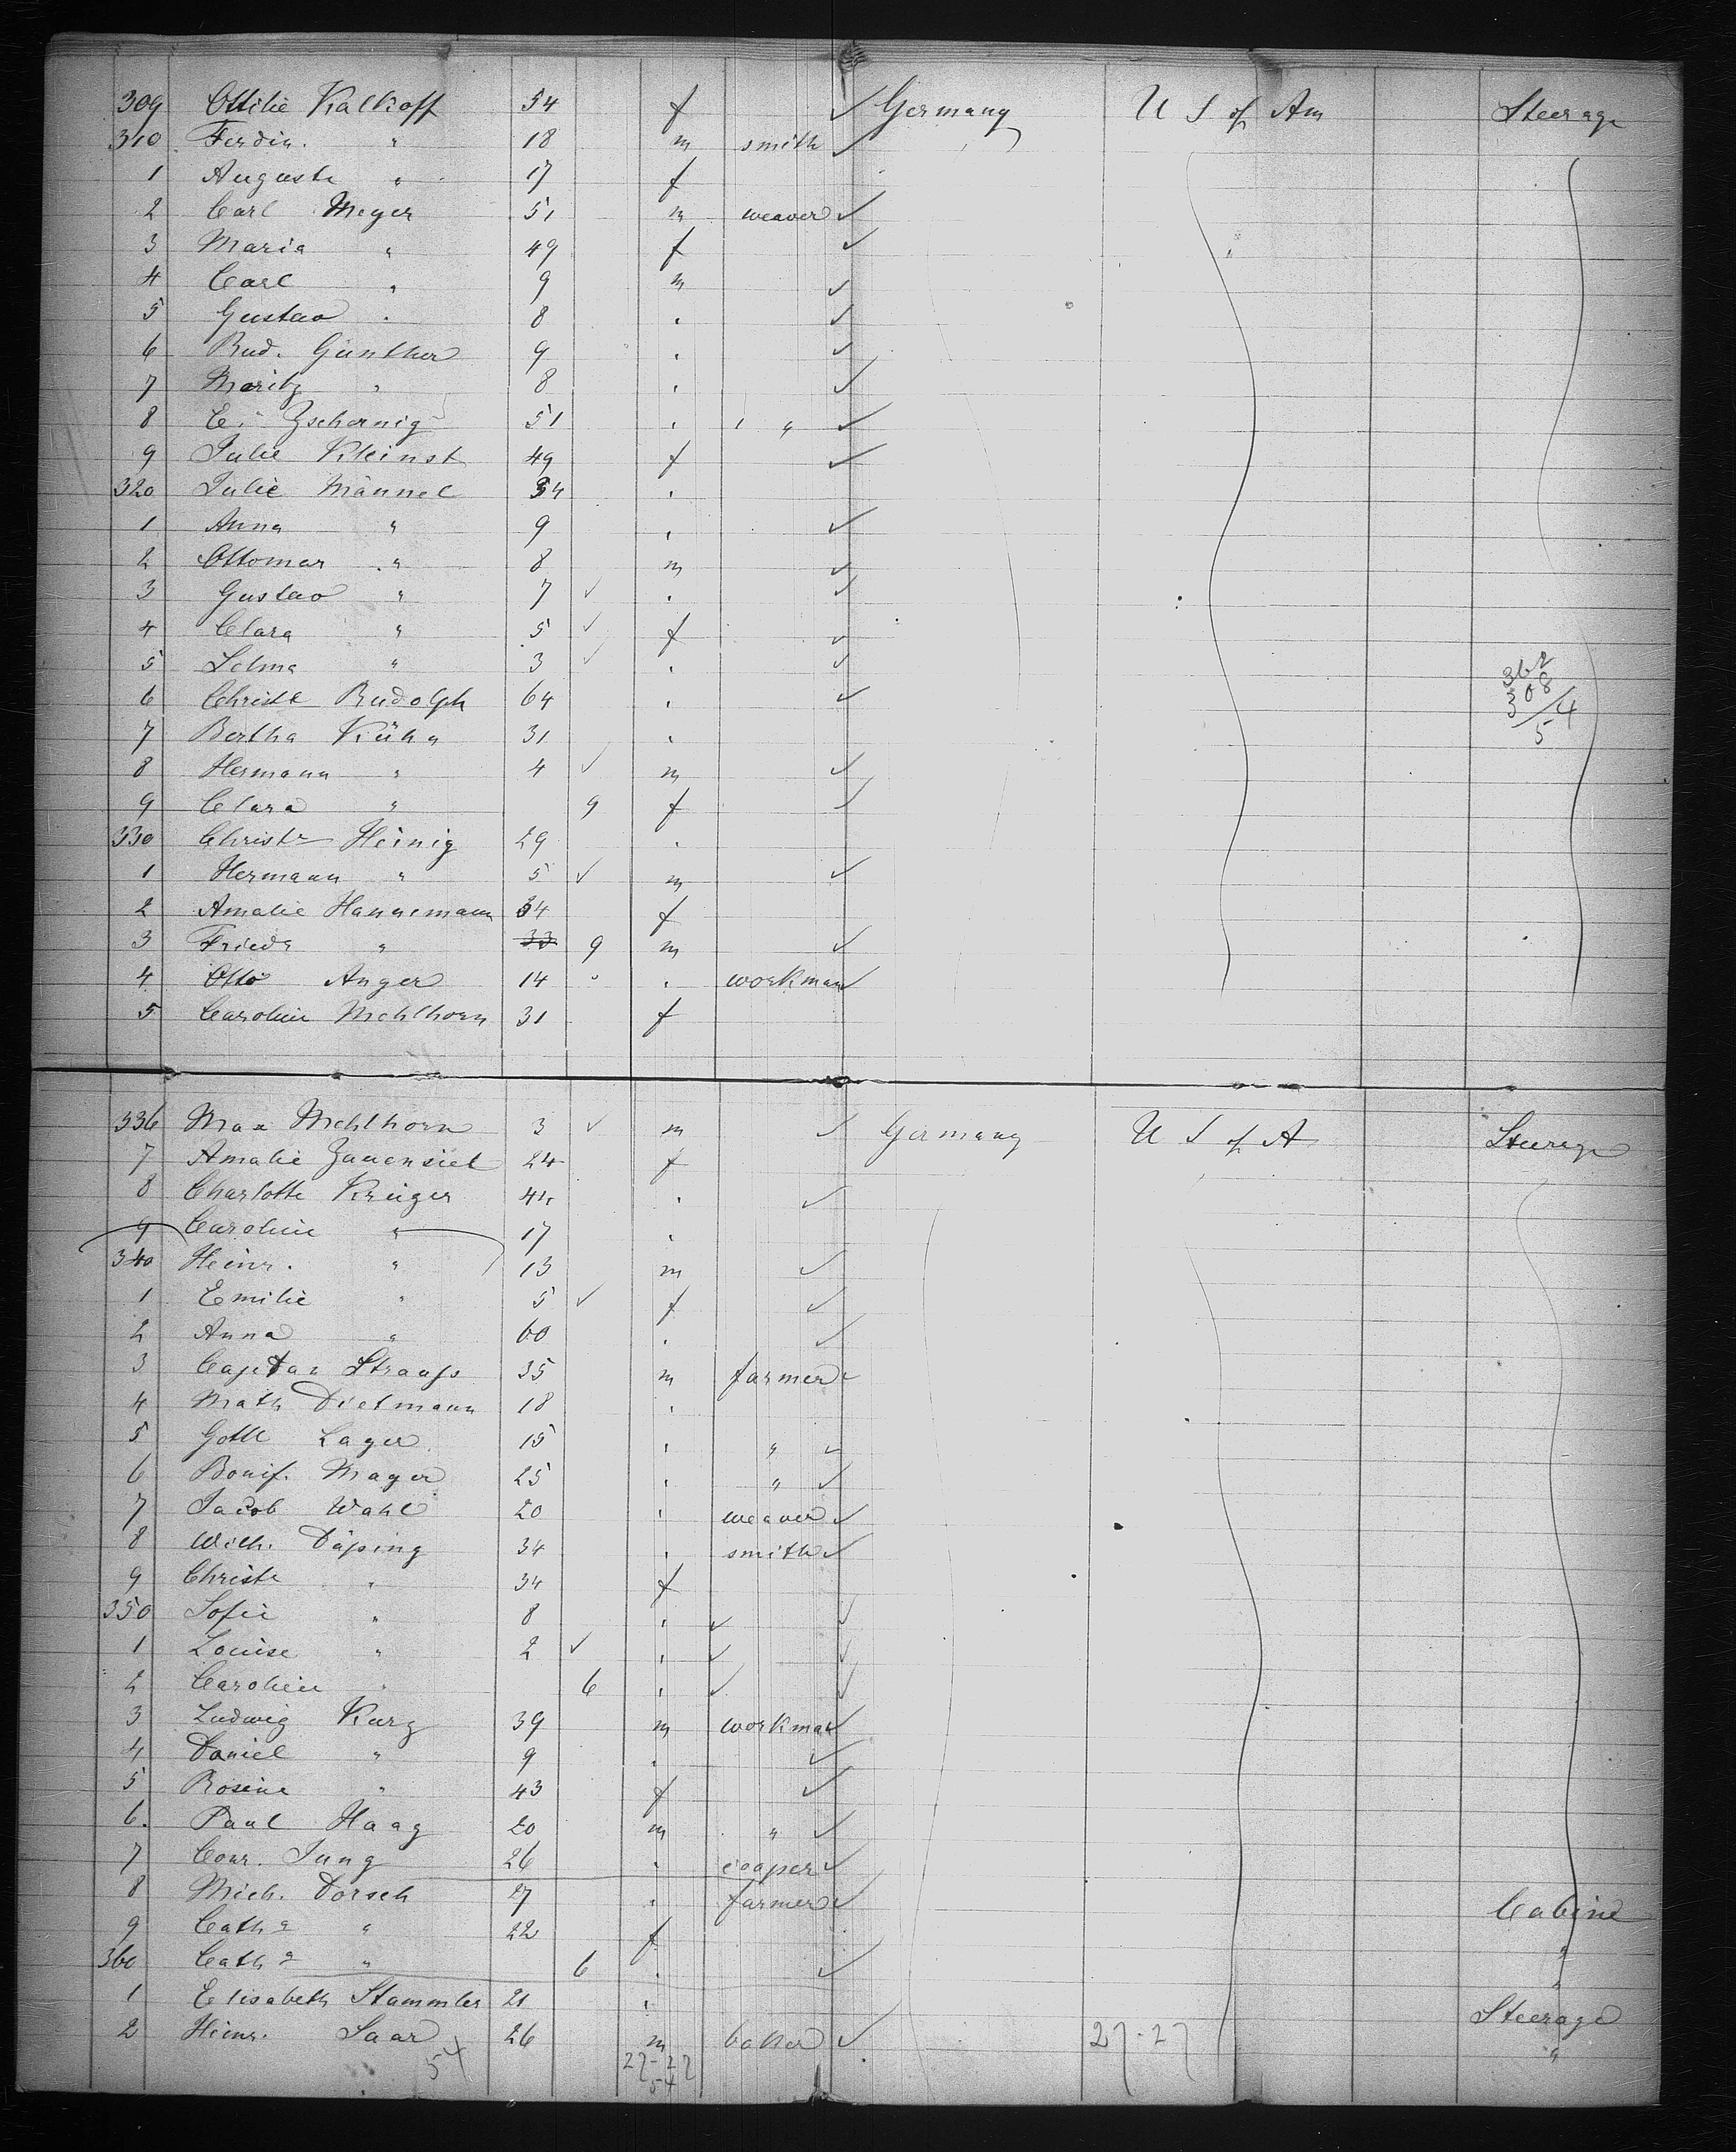 309 Ottilie Kalkoff 54 f ✓ Germany U S of Am Steerage
310 Ferdin. " 18 m smith ✓
1 Auguste " 17 f
2 Carl Meyer 51 m weaver ✓
3 Maria " 49 f ✓
4 Carl " 9 m ✓
5 Gustav " 8 " ✓
6 Rud. Günther 9 " ✓
7 Moritz " 8 " ✓
8 E. Zschernig 51 " " ✓
9 Julie Kleinst 49 f ✓
320 Julie Männel 34 "
1 Anna " 9 " ✓
2 Ottomar " 8 m ✓
3 Gustav " 7 ✓ " ✓
4 Clara " 5 ✓ f ✓
5 Selma " 3 ✓ " ✓
362
308
54
6 Christe Rudolph 64 " ✓
7 Bertha Kühn 31 "
8 Hermann " 4 ✓ m ✓
9 Clara " 9 f ✓
330 Christe Heinig 29 "
1 Hermann " 5 ✓ m ✓
2 Amalie Hannemann 34 f
3 Friedr " 33 9 m ✓
4 Otto Anger 14 " workman ✓
5 Caroline Mehlhorn 31 f
336 Max Mehlhorn 3 ✓ m ✓ Germany U S of A Steerage
7 Amalie 24 f
8 Charlotte Krüger 44 " ✓
9 Caroline " 17 "
340 Heinr. " 13 m ✓
1 Emilie " 5 ✓ f ✓
2 Anna " 60 " ✓
3 Cajetan Strauss 35 m farmer ✓
4 Math Dietmann 18 "
5 Gottl Lager 15 " " ✓
6 Bonif. Mager 25 " " ✓
7 Jacob Wahl 20 " weaver ✓
8 Wilh. Däping 34 " smith ✓
9 Christe " 34 f
350 Sofie " 8 " ✓ ✓
1 Louise " 2 ✓ " ✓ ✓
2 Caroline " 6 " ✓ ✓
3 Ludwig Kurz 39 m workman ✓
4 Daniel " 9 " ✓
5 Rosine " 43 f ✓
6. Paul Haag 20 m " ✓
7 Conr. Jung 26 " cooper ✓
8 Mich. Dorsch 27 " farmer ✓ Cabine
9 Cath. " 22 f "
360 Cath. " 6 " ✓ "
1 Elisabeth Stammler 21 " Steerage
2 Heinr. Saar 26 m baker ✓ 27-27 "
54 27-27
54